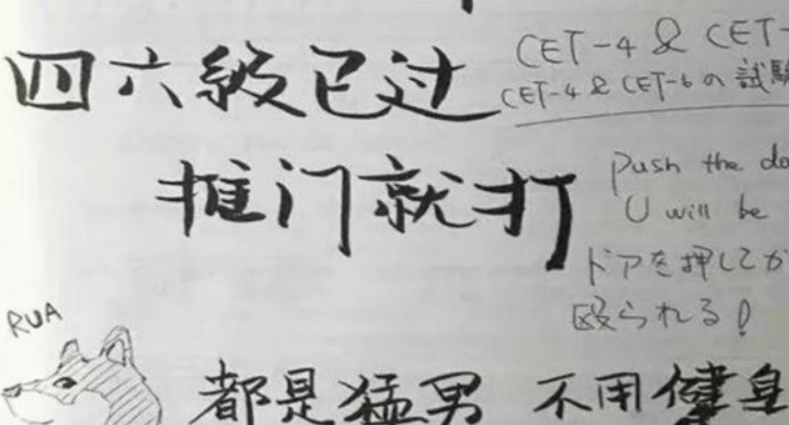 四六级已过
CET-4 & CET-
CET-4 & CET-6 の 試験
推门就打
push the do
U will be
ドアを押してか
殴られる！
RUA
都是猛男 不用健身